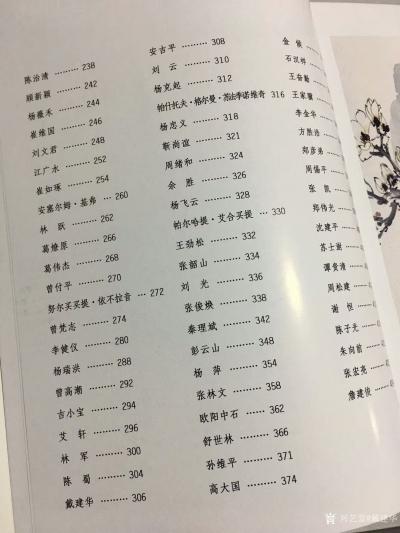 陈治清 ……… 238
顾新颖 ……… 242
杨薇禾 ……… 244
崔维国 ……… 246
刘文君 ……… 248
江广水 ……… 252
崔如琢 ……… 254
安塞尔姆·基弗 ……… 260
林 跃 ……… 262
葛燎原 ……… 266
葛伟杰 ……… 268
曾付平 ……… 270
努尔买买提·依不拉音 ……… 272
曾梵志 ……… 274
李健仪 ……… 280
杨瑞洪 ……… 288
曾高潮 ……… 292
吉小宝 ……… 294
艾 轩 ……… 296
林 军 ……… 300
陈 蜀 ……… 304
戴建华 ……… 306
安吉平 ……… 308
刘 云 ……… 310
杨克起 ……… 312
帕什托夫·格尔曼·苏法季诺维奇 316
杨忠义 ……… 318
靳尚谊 ……… 321
周绪和 ……… 324
余 胜 ……… 326
杨飞云 ……… 328
帕尔哈提·艾合买提 ……… 330
王劲松 ……… 332
张韶山 ……… 334
刘 光 ……… 336
张俊焕 ……… 338
泰理斌 ……… 342
彭云山 ……… 348
杨 萍 ……… 354
张林文 ……… 358
欧阳中石 ……… 362
舒世林 ……… 366
孙维平 ……… 371
高大国 ……… 374
金 候
石汉祥
王奋勤
王家骥
李金华
方胜浩
郑彦弟
周倜平
张 凯
郑伟光
沈建平
苏士澍
谭贵清
周松建
谢 恒
陈子光
朱向前
张宏亮
詹建俊